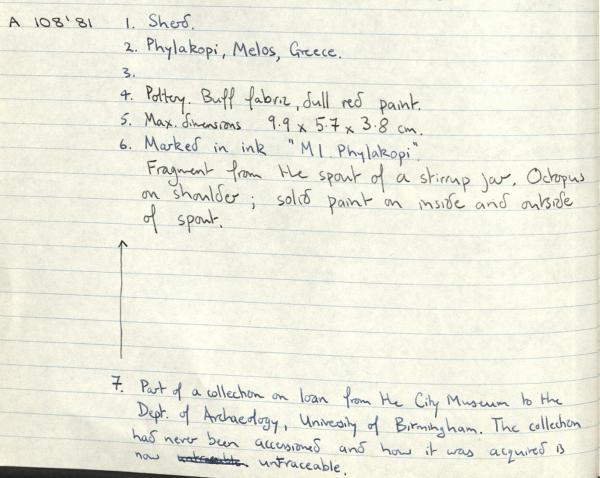 A 108'81 1. Sherd.
2. Phylakopi, Melos, Greece.
3.
4. Pottery. Buff fabric, dull red paint.
5. Max. dimensions 9.9 x 5.7 x 3.8 cm.
6. Marked in ink "M1. Phylakopi"
Fragment from the spout of a stirrup jar. Octopus
on shoulder; solid paint on inside and outside
of spout.
7. Part of a collection on loan from the City Museum to the
Dept. of Archaeology, University of Birmingham. The collection
had never been accessioned and how it was acquired is
now untraceable.